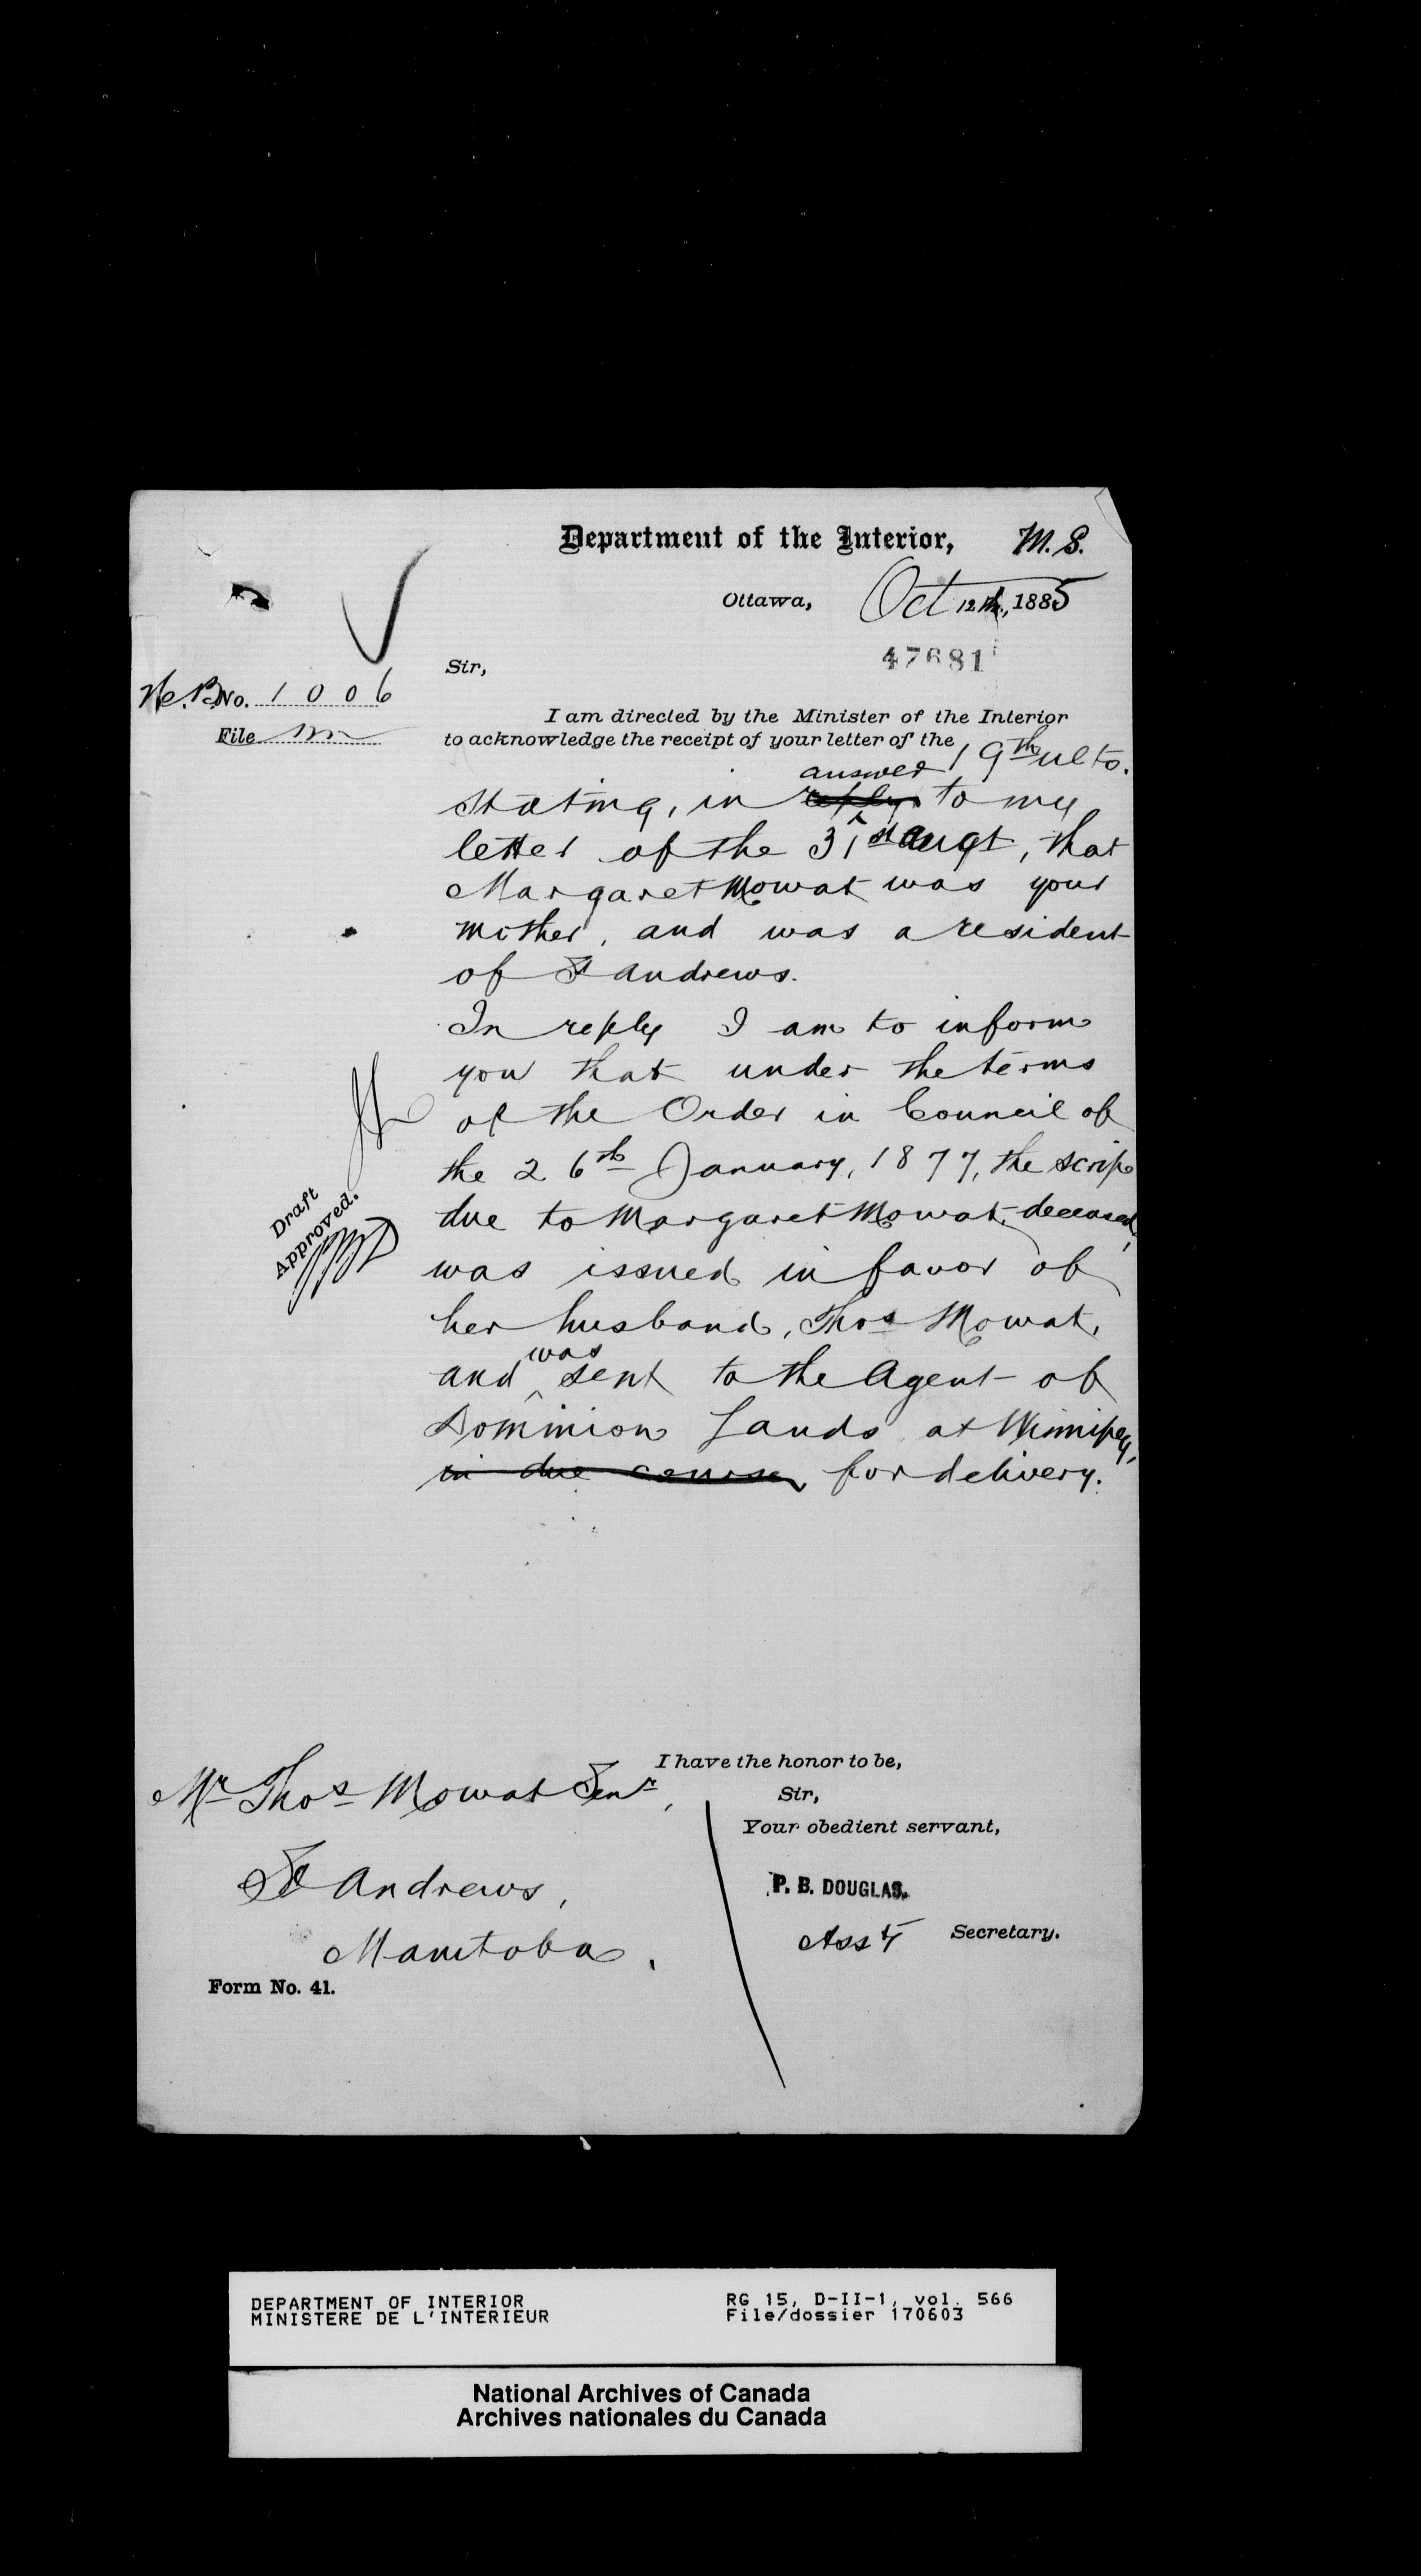 Department of the Interior, M. S.
Ottawa, Oct 12th, 1885
47681
Sir,
H.B. No. 1006
File
I am directed by the Minister of the Interior
to acknowledge the receipt of your letter of the 19th ulto.
answer
stating, in reply to my
letter of the 31st Augt, that
Margaret Mowat was your
mother, and was a resident
of St Andrews.
In reply I am to inform
you that under the terms
of the Order in Council of
the 26th January, 1877, the scrip
due to Margaret Mowat, deceased,
was issued in favor of
her husband, Thos Mowat,
was
and sent to the Agent of
Dominion Lands at Winnipeg,
in due course, for delivery.
Draft
Approved.
I have the honor to be,
Sir,
Your obedient servant,
P. B. DOUGLAS.
Asst Secretary.
Mr Thos Mowat Senr,
St Andrews,
Manitoba.
Form No. 41.
DEPARTMENT OF INTERIOR RG 15, D-II-1, vol. 566
MINISTERE DE L'INTERIEUR File/dossier 170603
National Archives of Canada
Archives nationales du Canada